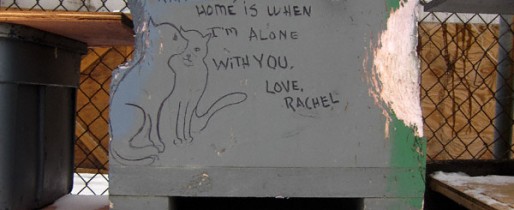 HOME IS WHEN
I'M ALONE
WITH YOU.
LOVE,
RACHEL